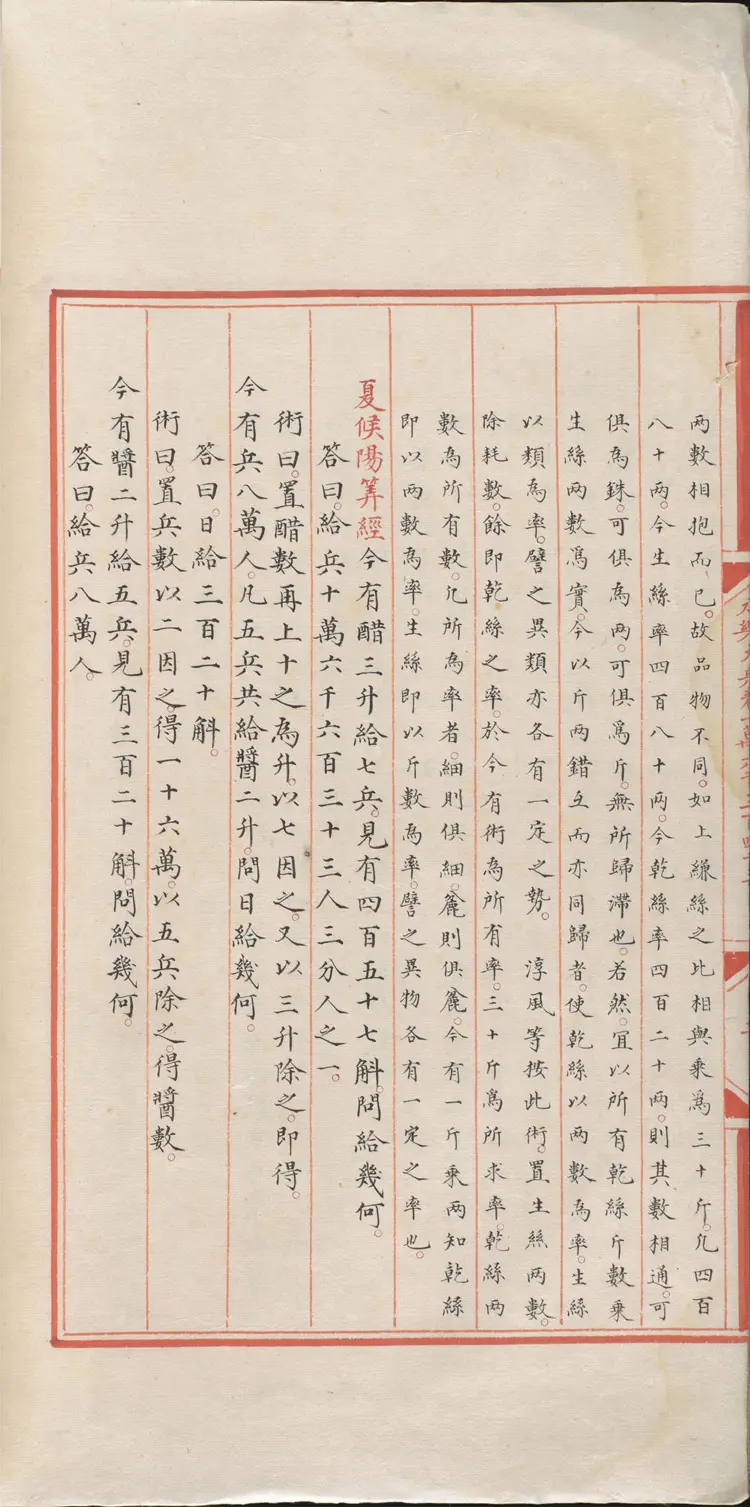 两數相抱而已。故品物不同。如上縑絲之比相與乗爲三十斤。凡四百
八十两。今生絲率四百八十两。今乾絲率四百二十两。則其數相通。可
俱為銖。可俱為两。可俱爲斤。無所歸滯也。若然。宜以所有乾絲斤數乗
生絲两數爲實。今以斤两錯互而亦同歸者。使乾絲以两數為率。生絲
以類為率。譬之異類亦各有一定之勢。 淳風等按此術。置生絲两數。
除耗數。餘即乾絲之率。於今有術為所有率。三十斤爲所求率。乾絲两
數為所有數。凡所為率者。細則俱細。麄則俱麄。今有一斤乗两知乾絲
即以两數為率。生絲即以斤數為率。譬之異物各有一定之率也。
夏侯陽筭經今有醋三升給七兵。見有四百五十七斛。問給幾何。
答曰。給兵十萬六千六百三十三人三分人之一。
術曰。置醋數再上十之為升。以七因之。又以三升除之。即得。
今有兵八萬人。凡五兵共給醬二升。問日給幾何。
答曰。日給三百二十斛。
術曰。置兵數以二因之。得一十六萬。以五兵除之。得醬數。
今有醬二升給五兵。見有三百二十斛。問給幾何。
答曰。給兵八萬人。